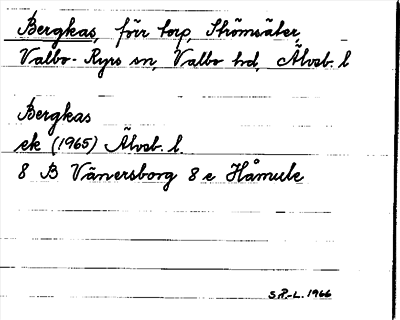 Bergkas, förr torp, Strömsäter,
Valbo-Ryrs sn, Valbo hd, Älvsb. l
Bergkas
ek (1965) Älvsb. l.
8 B Vänersborg 8 e Håmule
S.R.-L. 1966